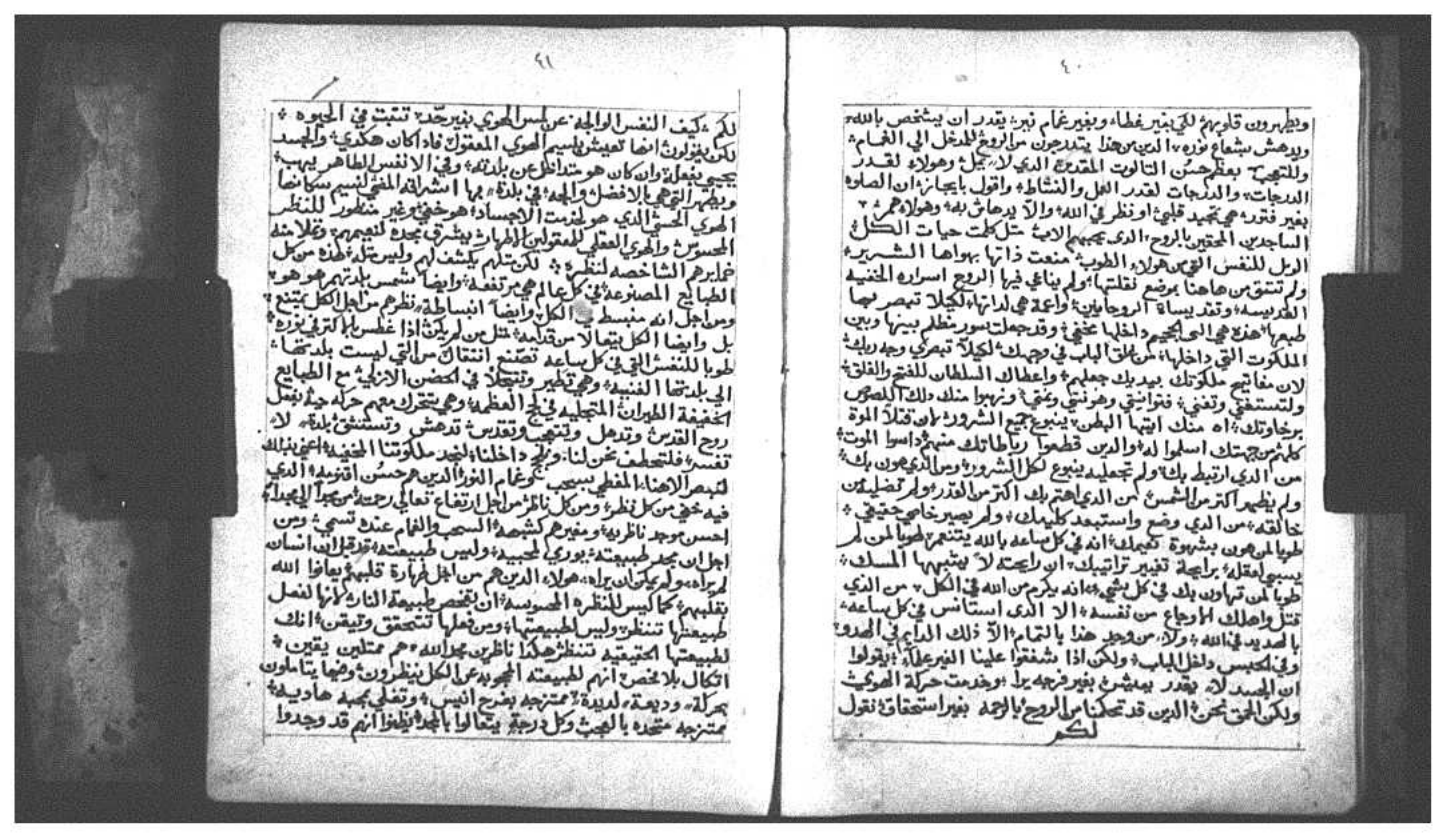 ٤٠
ويطهرون قلوبهم لكي بغير غطاء وبغير غمام نير يقدر ان يشخص بالله
ويدهش بشعاع نوره الذين من هذا يتدرجون من الروح للمدخل الي الغمام
وللتعجب بعظم حسن التالوت المقدس الذي لا وهولاء لقدر
الدرجات والدرجات لقدر العمل والنشاط واقول بايجاز ان الصلوه
بغير فتور هي تمجيد قلبي او نظر في الله والا يدهاش به وهولاء هم
الساجدين المحقين بالروح الذي يحبهم الاب مثل كلمت حيات الكل
الويل للنفس التي من هولاء الطوب منعت ذاتها بهواها الشرير
ولم تتنق من هاهنا بموضع نقلتها ولم يناغي فيها الروح اسراره الخفيه
القديسه واعمة هي لذاتها لكيلا تبصر بما
طبعها هذه هي الجحيم داخلها مخفي وقد جعلت سور مظلم بينها وبين
الملكوت التي داخلها من غلق الباب في وجهك لكيلا تبصري وجه ربك
لان مفاتيح ملكوتك بيديك جعلهم واعطاك السلطان للفتح والغلق
ولتستغني وتغني فتوانيتي وهونتي ونمتي ونهبوا منك ذلك اللصوص
برخاوتك اه منك ايتها البطن ينبوع جميع الشرور فان قتلا الموة
كلهم من جهتك اسلموا له والذين قطعوا رباطاتك منهم داسوا الموت
من الذي ارتبط بك ولم تجعليه ينبوع لكل الشرور ومن الذي هون بك
ولم يظهر اكتر من الشمس من الذي اهتم بك اكتر من القدر ولم تضليه من
خالقه من الذي وضع واستبعد كليمك ولم يصير خاصي حقيقي
طوبا لمن هون بشهوة نعيمك انه في كل ساعه بالله يتنعم طوبا لمن لم
يسبي لعقله برايحة تغيير تراتيبك ان رايحته لا يشبهها المسك
طوبا لمن تهاون بك في كل شي انه يكرم من الله في الكل من الذي
قتل واهلك الاوجاع من نفسه الا الذي استانس في كل ساعه
بالهديد في الله ولا من وجد هذا بالتمام الا ذلك الدايم في الهدو
وفي الحبس داخل الباب ولكن اذا شغفتوا علينا الغير علماء يقولوا
ان الجسد لا يقدر يعيش بغير فرجه برا وخدمت حركة الهوي
ولكن الحق نحن الذين قد تحكمنا من الروح بالرحمه بغير استحقاق نقول
لكم
٤١
لكم كيف النفس الوالجه عن لمس الهوي بغير حد تتبت في الحيوه
لكن يقولون انها تعيش بلسيم الهوي المعقول فاذا كان هكدي والجسد
يحيي بفعله وان كان هو عن بلدته وفي الانفس الطاهر يهب
ويظهر التي هي بالافضل والجه في بلدة بها اشراقه المغني لنسيم سكانها
الهوي الحسي الذي هو لخدمت الاجساد هو خفي وغير منظور للنظر
المحسوس والهوي العقلي للمعقولين الطهارت يشرق بمجده لنعيمهم وتملا منه
ضمايرهم الشاخصه لنظره لكن متلهم يكشف لهم وليس متله لهذه من كل
الطبايع المصنوعه في كل عالم هي مرتفعه وايضا شمس بلدتهم هو هو
ومن اجل انه منبسط في الكل وايضا انبساطه نظرهم من اجل الكل يمتنع
بل وايضا الكل يتعالا من قدامه متل من لم يكن اذا غطس بالاكتر في نوره
طوبا للنفس التي في كل ساعه تصنع انتقالا من التي ليست بلدتها
الي بلدتها الغنيه وهي تطير وتتجلا في الحضن الازلي مع الطبايع
الخفيفة الطيران المتجليه في لج العظمه وهي تتحرك معهم حركه حيه بفعل
روح القدس وتدهل وتتعجب وتقدس تدهش وتستنشق بلدة لا
تفسر فلنختطف نحن لنا ونلج داخلنا لنجد ملكوتنا المخفيه اعني بذلك
لنبصر الاهنا المغطي بسحب وغمام النور الذين هم حسن اقنومه الذي
فيه خفي من كل نظر ومن كل ناظر من اجل ارتفاع تعالي رحمته من مجدا الي مجدا
احسن موجد ناظريه ومغيرهم كشبهه السحب والغمام عنك تسمي ومن
اجل ان مجد طبيعته يوري لمحبيه وليس طبيعته قد قيل ان انسان
لم يراه ولم يمكن ان يراه هولاء الذين هم من اجل طهارة قلبهم يعاينوا الله
بقلبهم كما ليس للنظره المحسوسه ان تفحص طبيعة النار لانها لفعل
طبيعتها تنظر وليس لطبيعتها ومن فعلها تتحقق وتيقن انك
لطبيعتها الحقيقيه تنظر هكدا ناظرين مجد الله هم ممتلين يقين
اتكال بلا فحص انهم لطبيعته المحجوبه عن الكل ينظرون وفيها يتاملون
بحركة وديعة لذيذة ممتزجه بفرح انيس وتغلي بمحبه هاديه
ممتزجه متحده بالعجب وكل درجة يتعالوا بالمجد يظنوا انهم قد وجدوا